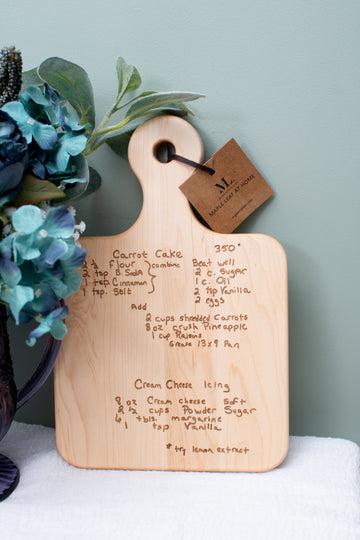 ML
MAPLE LEAF AT HOME
Carrot Cake 350°
Flour combine Beat well
2 tsp B. Soda 2 c. Sugar
1 tsp Cinnamon 1 c. Oil
1 tsp. Salt 2 tsp Vanilla
2 eggs
Add
2 cups shredded Carrots
8 oz crush Pineapple
1 cup Raisins
Grease 13x9 Pan
Cream Cheese Icing
8 oz Cream cheese Soft
2 ½ cups Powder Sugar
6 tbls. margarine
1 tsp Vanilla
* try lemon extract